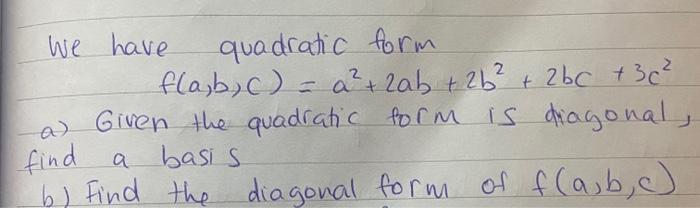 We have quadratic form
f(a,b,c) = a² + 2ab + 2b² + 2bc + 3c²
a) Given the quadratic form is diagonal,
find a basis
b) Find the diagonal form of f(a,b,c)